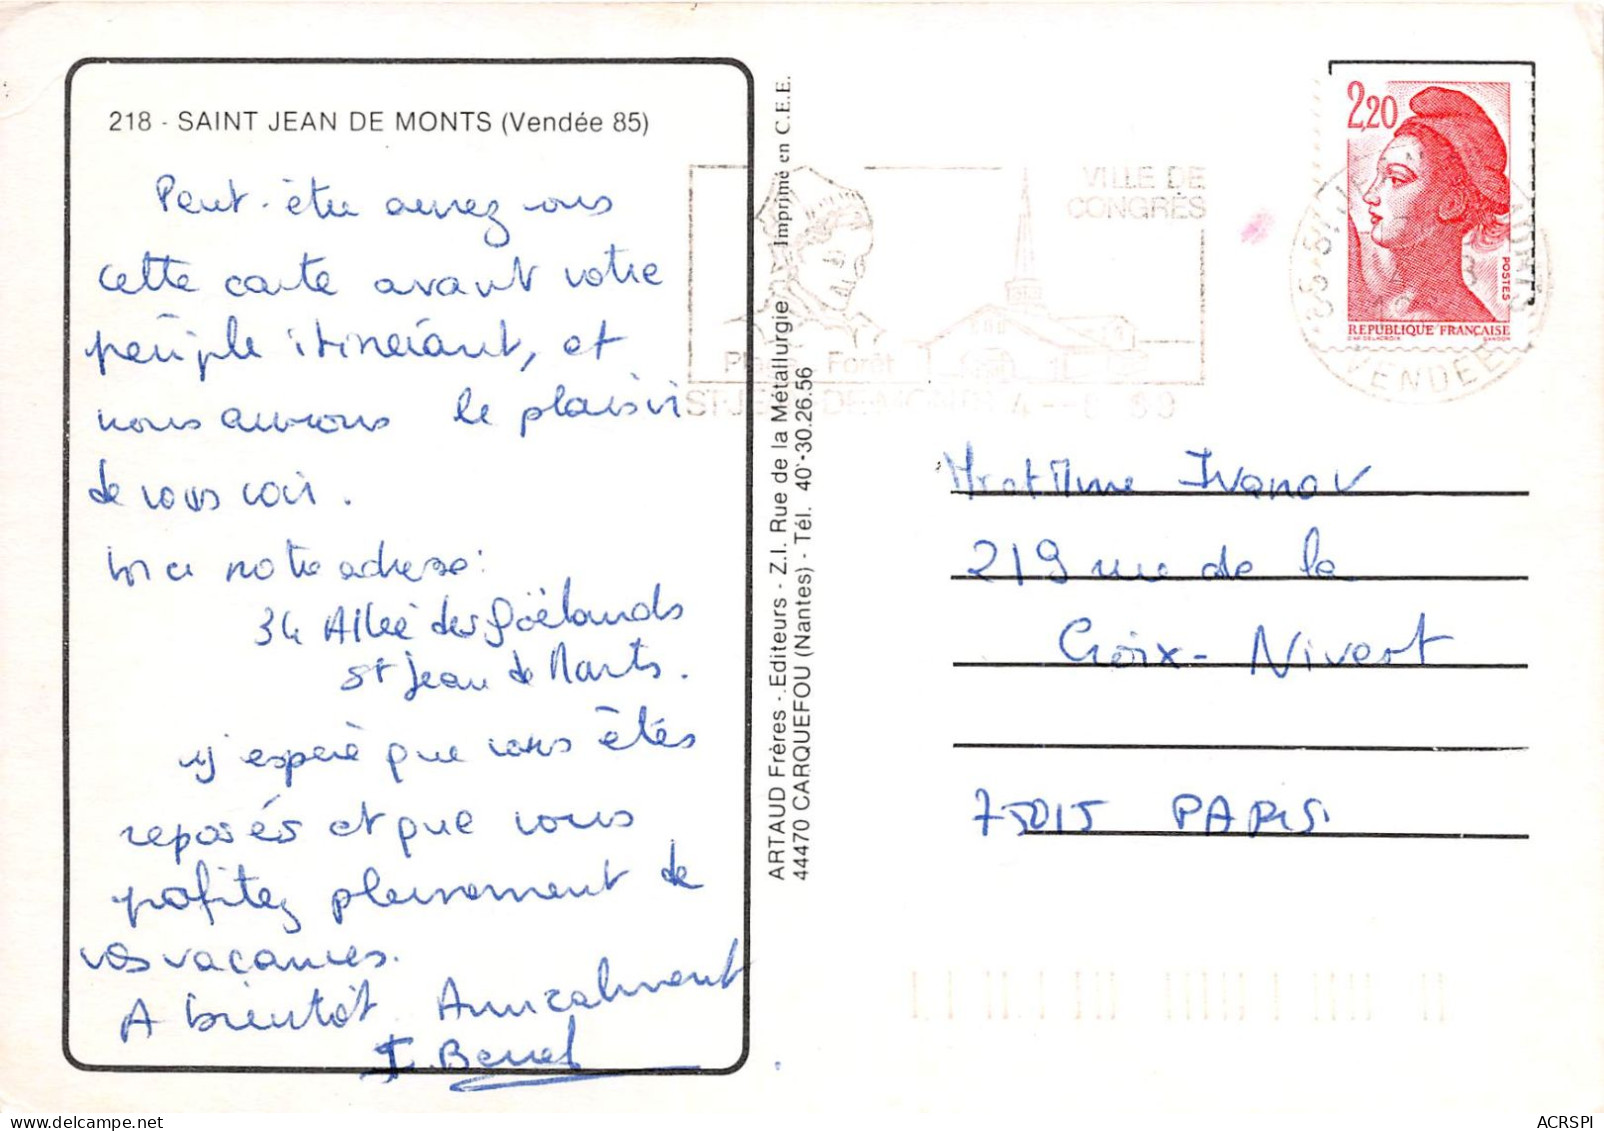 218 - SAINT JEAN DE MONTS (Vendée 85)
Peut-être aurez vous
cette carte avant votre
périple itinérant, et
nous aurons le plaisir
de vous voir.
Voici notre adresse:
34 Allée des goëlands
St Jean de Monts.
J'espère que vous êtes
reposés et que vous
profitez pleinement de
vos vacances.
A bientôt Amicalement
ARTAUD Frères - Editeurs - Z.I. Rue de la Métallurgie Imprimé en C.E.E.
44470 CARQUEFOU (Nantes) - Tél. 40-30.26.56
VILLE DE
CONGRÈS
Forêt
2,20
POSTES
REPUBLIQUE FRANÇAISE
D'AP. DELACROIX GANDON
VENDÉE
Mr et Mme Ivanov
219 rue de la
Croix-Nivert
75015 PARIS
ACRSPI